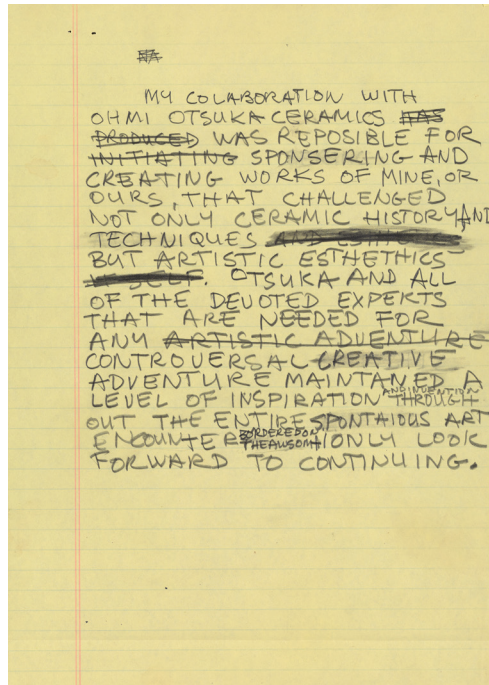 MY COLABORATION WITH
OHMI OTSUKA CERAMICS HAS
PRODUCED WAS REPOSIBLE FOR
INITIATING SPONSERING AND
CREATING WORKS OF MINE, OR
OURS, THAT CHALLENGED
NOT ONLY CERAMIC HISTORY, AND
TECHNIQUES
BUT ARTISTIC ESTHETHICS
OTSUKA AND ALL
OF THE DEVOTED EXPERTS
THAT ARE NEEDED FOR
ANY ARTISTIC ADVENTURE
CONTROVERSAL CREATIVE
ADVENTURE MAINTANED A
LEVEL OF INSPIRATION AND INVENTION THROUGH
OUT THE ENTIRE SPONTAIOUS ART
ENCOUNTER BORDERED ON THE AWSOM I ONLY LOOK
FORWARD TO CONTINUING.